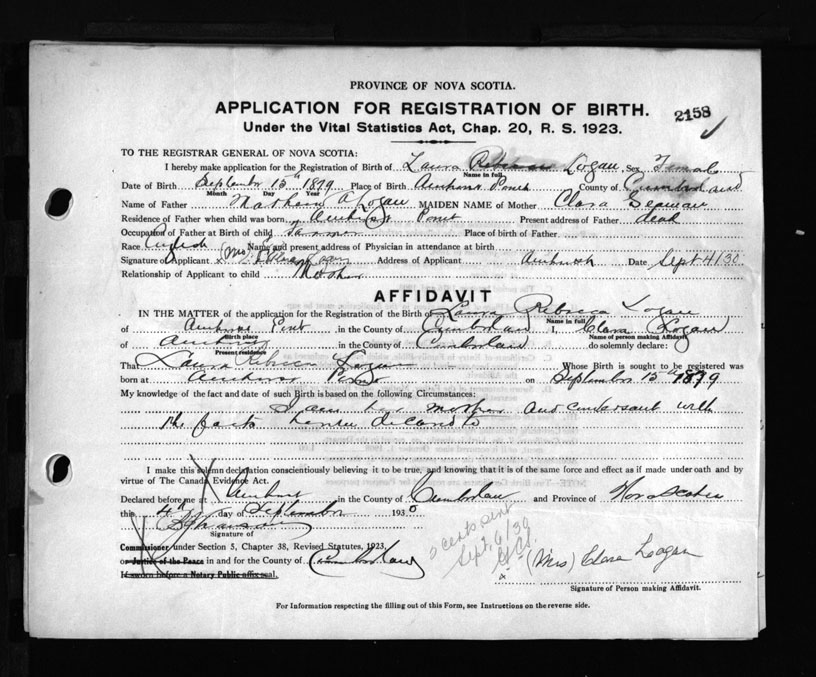 PROVINCE OF NOVA SCOTIA.
APPLICATION FOR REGISTRATION OF BIRTH.
2158
Under the Vital Statistics Act, Chap. 20, R. S. 1923.
TO THE REGISTRAR GENERAL OF NOVA SCOTIA:
I hereby make application for the Registration of Birth of Laura Rebecca Logan Sex Female
Name in full
Date of Birth September 15th 1899 Place of Birth Amherst Point County of Cumberland
Month Day Year
Name of Father Nathan A Logan MAIDEN NAME of Mother Clara
Residence of Father when child was born Amherst Point Present address of Father dead
Occupation of Father at Birth of child Farmer Place of birth of Father
Race English Name and present address of Physician in attendance at birth
Signature of Applicant x (Mrs) Clara Logan Address of Applicant Amherst Date Sept 4/30
Relationship of Applicant to child Mother
AFFIDAVIT
IN THE MATTER of the application for the Registration of the Birth of Laura Rebecca Logan
Name in full
of Amherst Point in the County of Cumberland I, Clara Logan
Birth place Name of person making Affidavit
of Amherst in the County of Cumberland do solemnly declare:
Present residence
That Laura Rebecca Logan Whose Birth is sought to be registered was
born at Amherst Point on September 15th 1899
My knowledge of the fact and date of such Birth is based on the following Circumstances:
I am her mother and conversant with
the facts herein declared to
I make this solemn declaration conscientiously believing it to be true, and knowing that it is of the same force and effect as if made under oath and by
virtue of The Canada Evidence Act.
Declared before me at Amherst in the County of Cumberland and Province of Nova Scotia
this 4th day of September 1930
Signature of
Commissioner under Section 5, Chapter 38, Revised Statutes, 1923,
or Justice of the Peace in and for the County of Cumberland
If sworn before a Notary Public affix seal.
cents sent
Sept. 6/30
(Mrs) Clara Logan
Signature of Person making Affidavit.
For Information respecting the filling out of this Form, see Instructions on the reverse side.